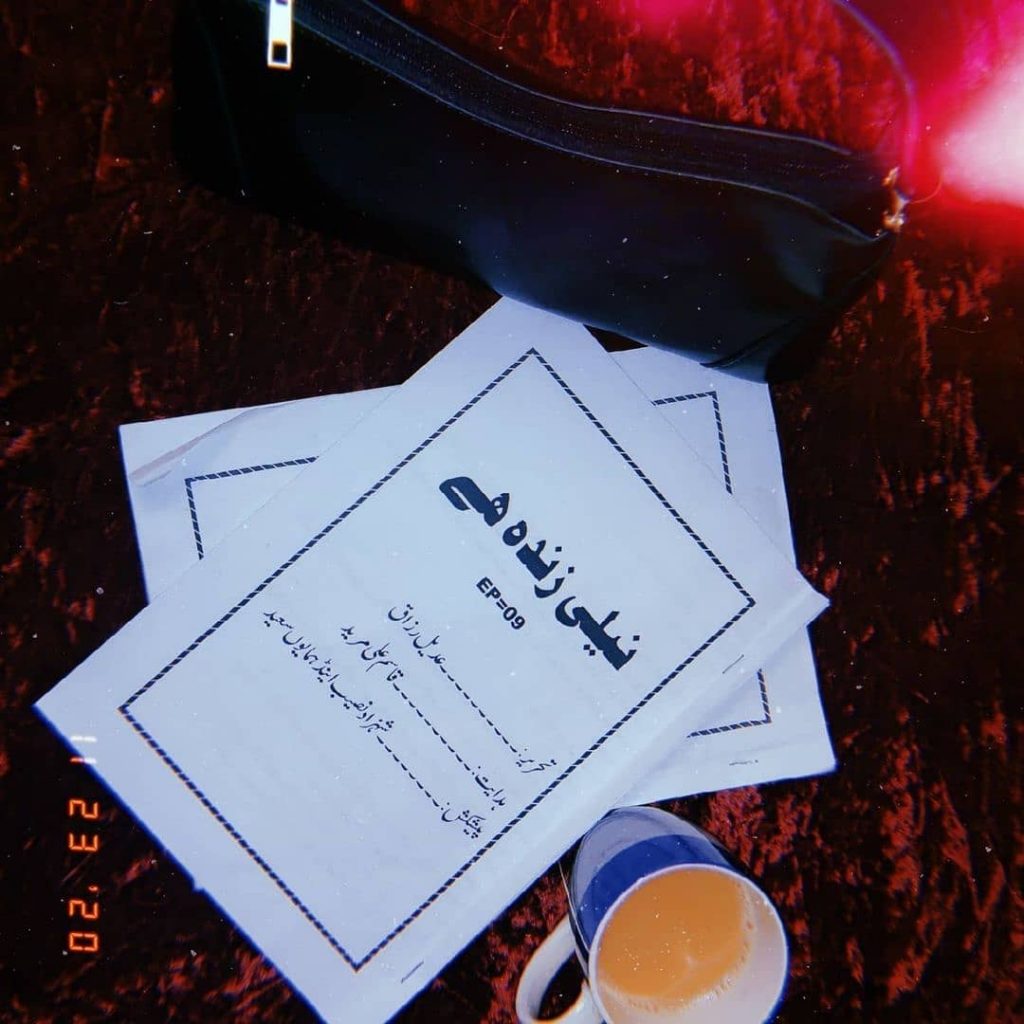 نیلی زندہ ھے
EP=09
تحریر:۔۔۔۔۔۔۔۔عدیل رزاق
ہدایت:۔۔۔۔۔۔۔۔قاسم علی مرید
پیشکش:۔۔۔۔۔۔۔۔شہزاد نصیب اینڈ ہمایوں سعید
11 23 '20